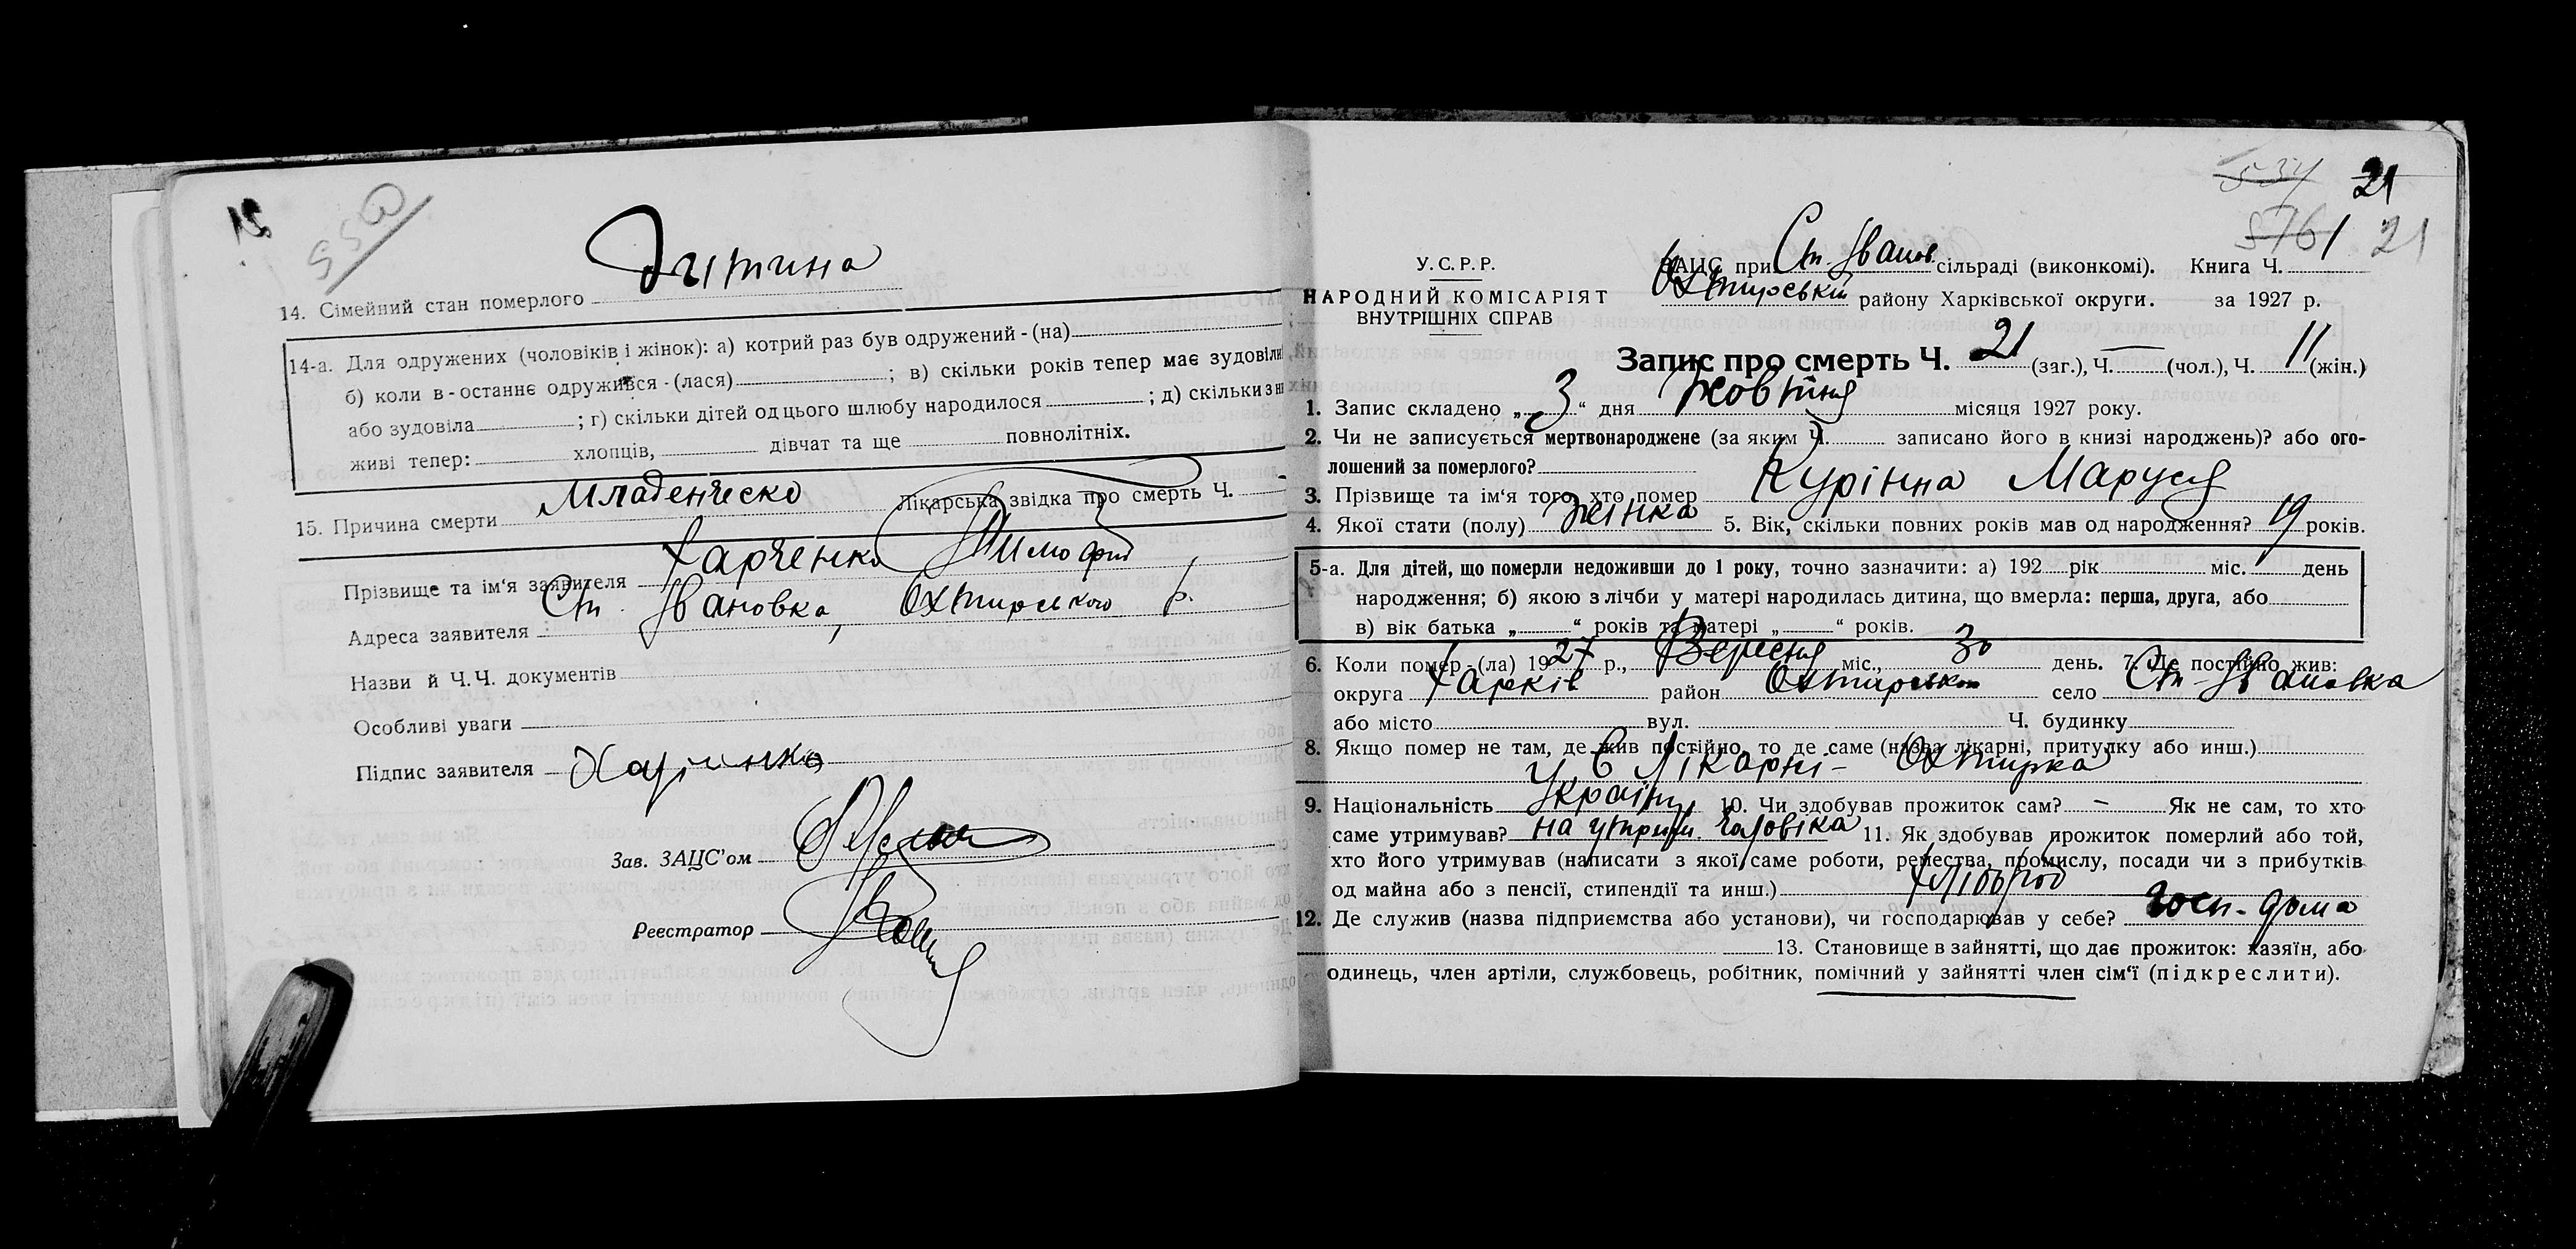 21
14. Сімейний стан померлого Дитина
14-а. Для одружених (чоловіків і жінок): а) котрий раз був одружений - (на)
б) коли в-останнє одружився - (лася) ; в) скільки років тепер має зудовіли
або зудовіла ; г) скільки дітей од цього шлюбу народилося ; д) скільки з ни
живі тепер: хлопців, дівчат та ще повнолітніх.
15. Причина смерти Младенческо Лікарська звідка про смерть Ч. -
Прізвище та ім'я заявителя Харченко Тимофий
Адреса заявителя : Ст. Ивановка, Охтирського р.
Назви й Ч.Ч. документів
Особливі уваги
Підпис заявителя Харченко
Зав. ЗАЦС'ом
Реєстратор
534 21
5761 21
У.С.Р.Р.
НАРОДНИЙ КОМІСАРІЯТ
ВНУТРІШНІХ СПРАВ
ЗАЦС при Ст. Иванов. сільраді (виконкомі). Книга Ч.
Охтирській району Харківської округи. за 1927 р.
Запис про смерть Ч. 21 (заг.), Ч. — (чол.), Ч. 11 (жін.)
1. Запис складено „ 3 “ дня Жовтня місяця 1927 року.
2. Чи не записується мертвонароджене (за яким Ч. записано його в книзі народжень)? або ого-
лошений за померлого?
3. Прізвище та ім'я того, хто помер Курінна Маруся
4. Якої стати (полу) Жінка 5. Вік, скільки повних років мав од народження? 19 років.
5-а. Для дітей, що померли недоживши до 1 року, точно зазначити: а) 192 рік міс. день
народження; б) якою з лічби у матері народилась дитина, що вмерла: перша, друга, або
в) вік батька „ “ років та матері „ “ років.
6. Коли помер-(ла) 1927 р., Вересня міс., 30 день. 7. Де постійно жив:
округа Харків район Охтирськом село Ст-Ивановка
або місто вул. Ч. будинку
8. Якщо помер не там, де жив постійно, то де саме (назва лікарні, притулку або инш.)
Лікарні - Охтирка
9. Національність Україн 10. Чи здобував прожиток сам? - Як не сам, то хто
саме утримував? на утрим. чаловіка 11. Як здобував прожиток померлий або той,
хто його утримував (написати з якої саме роботи, ремества, промислу, посади чи з прибутків
од майна або з пенсії, стипендії та инш.) Хлібороб
12. Де служив (назва підприємства або установи), чи господарював у себе? Госп. дома
13. Становище в зайнятті, що дає прожиток: хазяїн, або
одинець, член артіли, службовець, робітник, помічний у зайнятті член сім'ї (підкреслити).